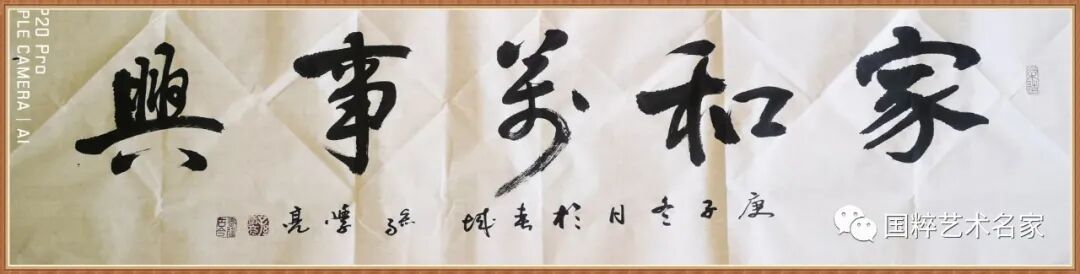 家和萬事興
庚子冬月於春城 孫學亮
国粹艺术名家
P20 Pro
PLE CAMERA | AI